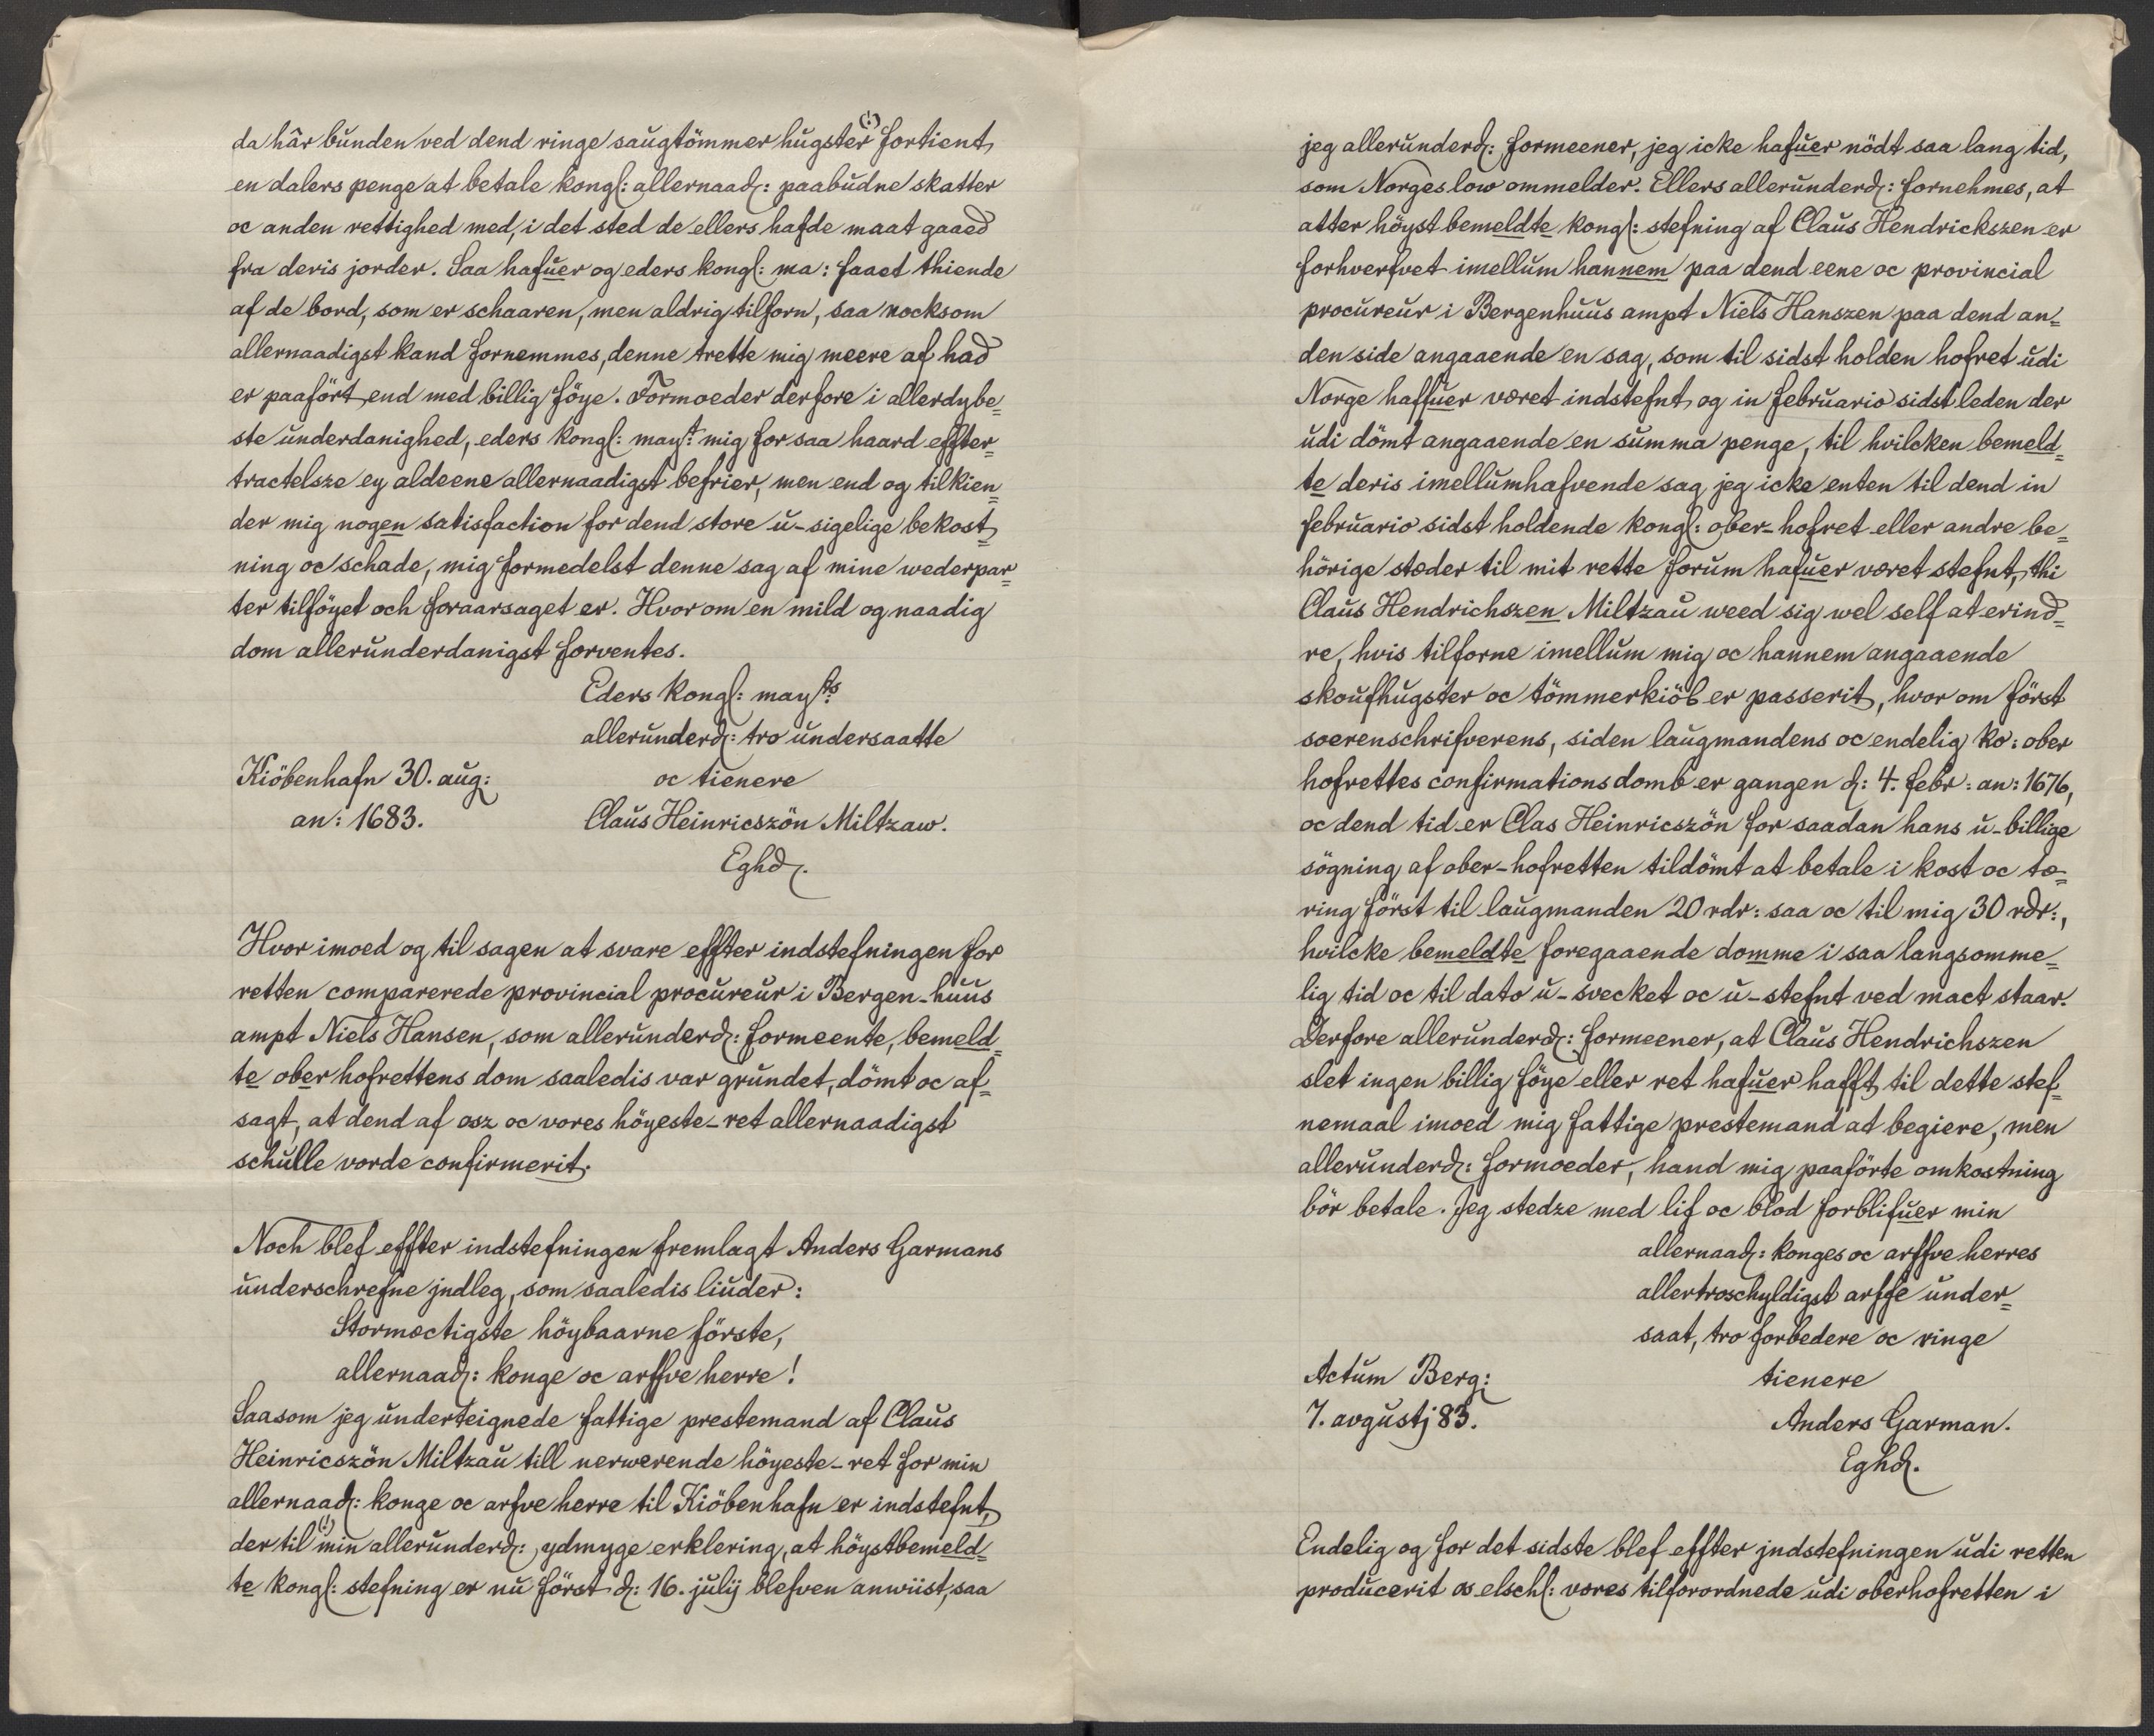 da här bunden ved dend ringe saugtömmer hugster (:) fortient
en dalers penge at betale kongl: allernaad: paabudne skatter
oc anden rettighed med, i det sted de ellers hafde maat gaaed
fra deris jorder. Saa hafuer og eders kongl: ma: faaet thiende
af de bord, som er schaaren, men aldrig tilforn, saa nocksom
allernaadigst kand fornemmes, denne trette mig meere af had
er paafört end med billig föye. Formoeder derfore i allerdybe=
ste underdanighed, eders kongl: mayt: mig for saa haard effter=
tractelsze ey aldeene allernaadigst befrier, men end og tilkien=
der mig nogen satisfaction for dend store u-sigelige bekost=
ning oc schade, mig formedelst denne sag af mine wederpar=
ter tilföyet och foraarsaget er. Hvorom en mild og naadig
dom allerunderdanigst forventes.
Eders kongl: mayts:
allerunderd: tro undersaatte
Kiöbenhafn 30. aug: oc tienere
an: 1683. Claus Heinricszön Miltzaw.
Eghd.
Hvor imoed og til sagen at svare effter indstefningen for
retten comparerede provincial procureur i Bergen-huus
ampt Niels Hansen, som allerunderd: formeente, bemeld=
te ober hofrettens dom saaledis var grundet, dömt oc af=
sagt, at dend af osz oc vores höyeste-ret allernaadigst
schulle vorde confirmerit.
Noch blef effter indstefningen fremlagt Anders Garmans
underschrefne jndleg, som saaledis liuder:
Stormectigste höybaarne förste,
allernaad: konge oc arffve herre!
Saasom jeg underteignede fattige prestemand af Claus
Heinricszön Miltzau till nerwerende höyeste-ret for min
allernaad: konge oc arfve herre til Kiöbenhafn er indstefnt,
der til (!) min allerunderd: ydmyge erklering, at höystbemeld=
te kongl: stefning er nu först d: 16. julij blefven anwiist, saa
jeg allerunderd: formeener, jeg icke hafuer nödt saa lang tid,
som Norges low ommelder. Ellers allerunderd: fornehmes, at
atter höyst bemeldte kongl: stefning af Claus Hendrickszen er
forhverfvet imellum hannem paa dend eene oc provincial
procureur i Bergenhuus ampt Niels Hanszen paa dend an=
den side angaaende en sag, som til sidst holden hofret udi
Norge haffuer været indstefnt og in februario sidst leden der
udi dömt angaaende en summa penge, til hvilcken bemeld=
te deris imellumhafvende sag jeg icke enten til dend in
februario sidst holdende kongl: ober-hofret eller andre be=
hörige stæder til mit rette forum hafuer været stefnt, thi
Claus Hendrichszen Miltzau weed sig wel self at erind=
re, hvis tilforne imellum mig oc hannem angaaende
skoufhugster oc tömmerkiöb er passerit, hvor om först
soerenschrifverens, siden laugmandens oc endelig ko: ober
hofrettes confirmations domb er gangen d: 4. febr: an: 1676,
oc dend tid er Clas Heinricszön for saadan hans u-billige
sögning af ober-hofretten tildömt at betale i kost oc tæ=
ring först til laugmanden 20 rdr: saa oc til mig 30 rdr:,
hvilcke bemeldte foregaaende domme i saa langsomme=
lig tid oc til dato u-svecket oc u-stefnt ved mact staar.
Derfore allerunderd: formeener, at Claus Hendrichszen
slet ingen billig föye eller ret hafuer hafft til dette stef=
nemaal imoed mig fattige prestemand at begiere, men
allerunderd: formoeder, hand mig paaförte omkostning
bör betale. Jeg stedze med lif oc blod forblifuer min
allernaad: konges oc arffve herres
allertroschyldigst arffe under=
saat, tro forbedere oc ringe
Actum Berg: tienere
7. avgustj 83. Anders Garman.
Eghd.
Endelig og for det sidste blef effter jndstefningen udi retten
producerit os elschl: vores tilforordnede udi oberhofretten i